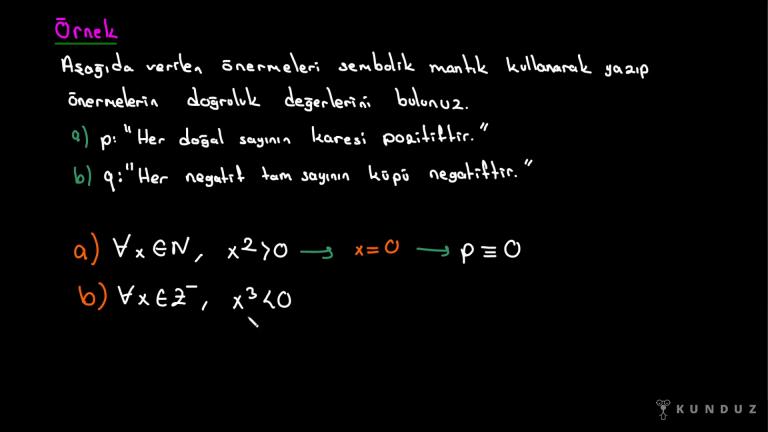 Örnek
Aşağıda verilen önermeleri sembolik mantık kullanarak yazıp
önermelerin doğruluk değerlerini bulunuz.
a) p: "Her doğal sayının karesi pozitiftir."
b) q: "Her negatif tam sayının küpü negatiftir."
a) ∀x∈N, x²>0 → x=0 → p≡0
b) ∀x∈Z⁻, x³<0
KUNDUZ